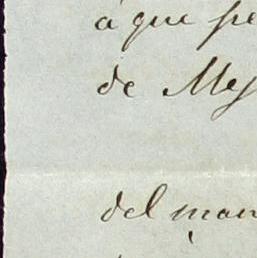 á que pe
de Mej
del man